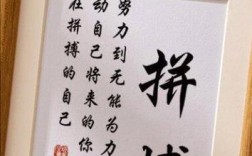 拼搏
努力到无能为力
动自己将来的你
在拼搏的自己